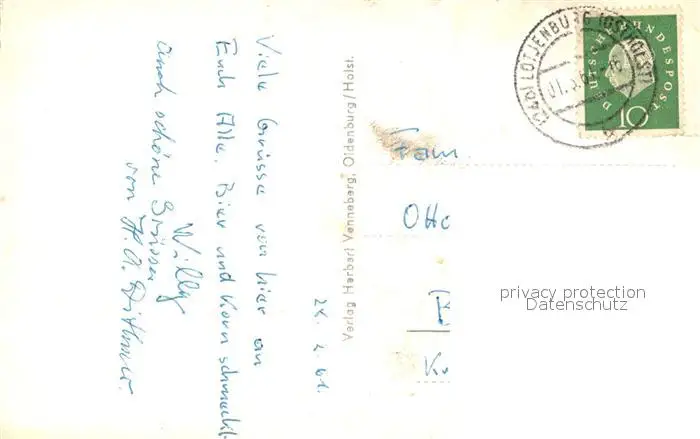 28. 2. 61.
Viele Grüsse von hier an
Euch Alle. Bier und Korn schmeckt
Willy
Auch schöne Grüsse
von H. A.
Verlag Herbert Venneberg, Oldenburg/Holst.
(24b) LÜTJENBURG (OSTHOLST)
DEUTSCHE BUNDESPOST
10
Fam.
Otto
privacy protection
Datenschutz